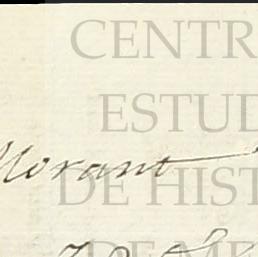 CENTR
ESTUD
Morant
DE HIST
DE ME